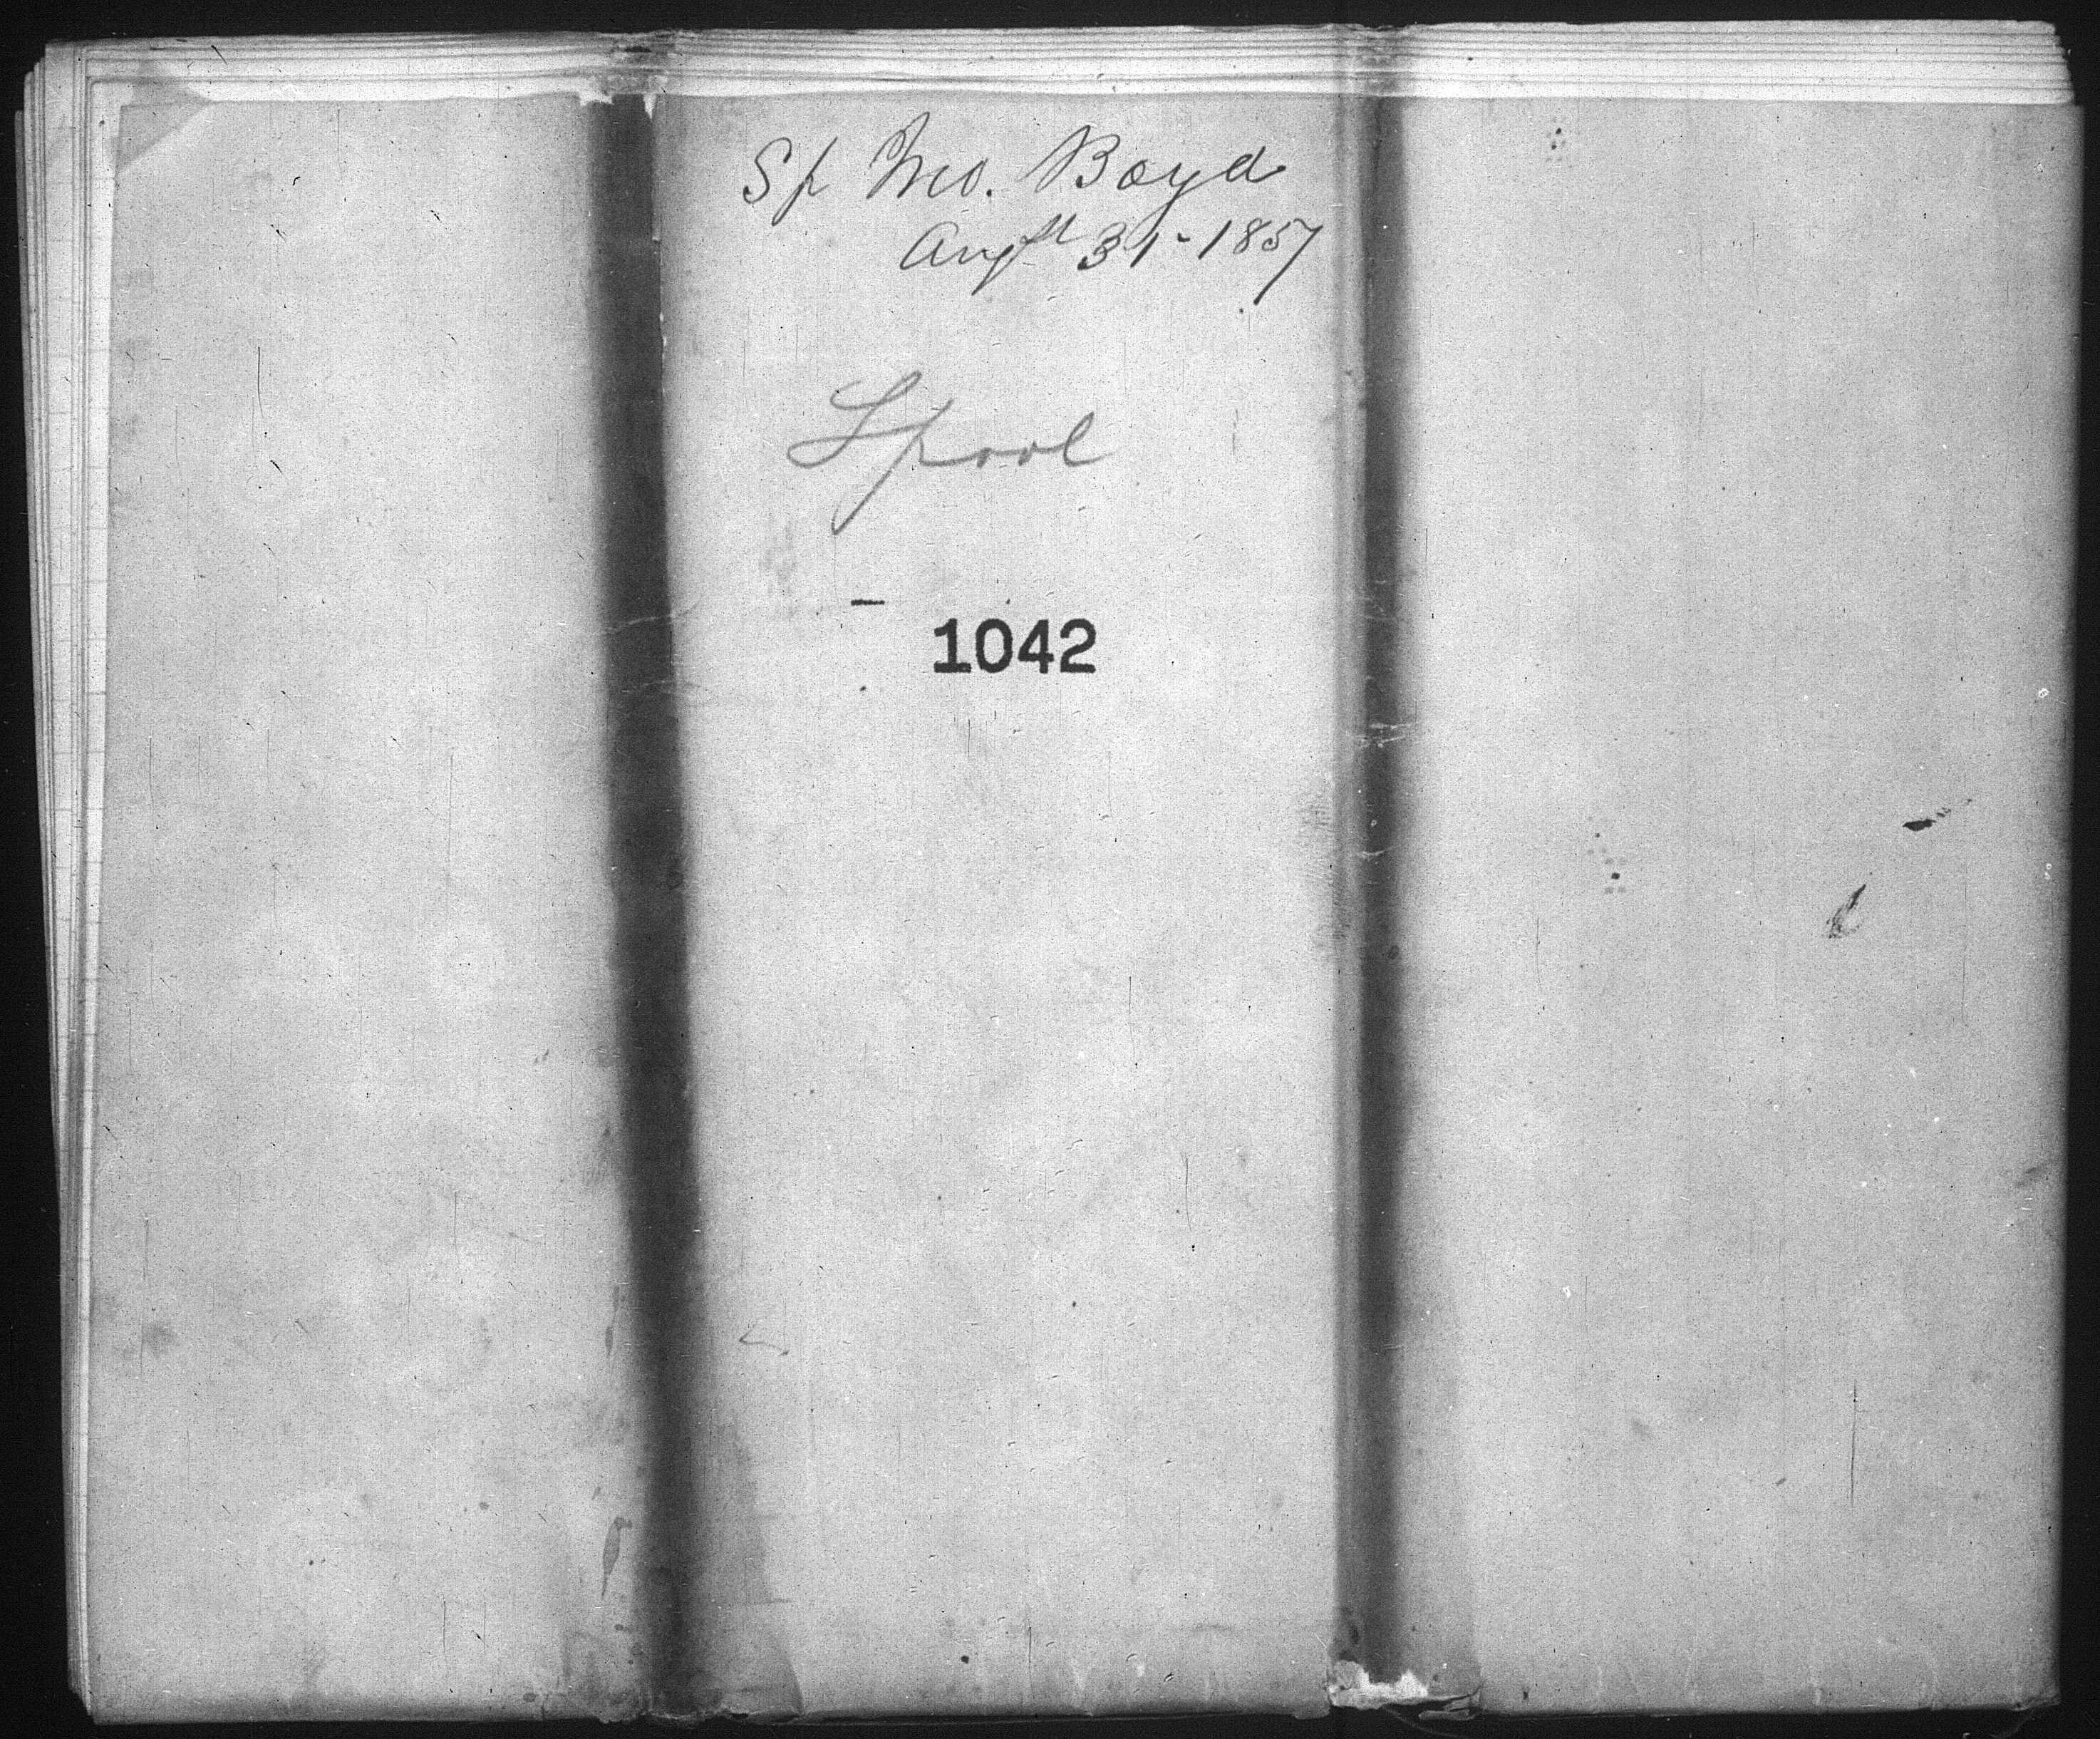 Sp Geo. Boyd
Augst 31-1857
Lpool
1042